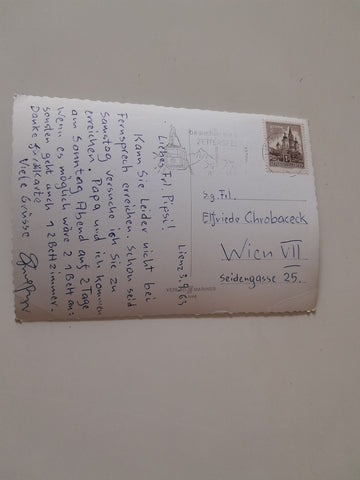 Lienz 3.9.63
Liebes Frl. Pipsi!
Kann Sie Leider nicht bei
Fernsprech erreichen. Schon seid
Samstag versuche ich sie zu
erreichen. Papa und ich kommen
am Sonntag Abend auf 2 Tage
Wenn es möglich wäre 2 1 Bett an:
sonsten geht auch 1 2 Bettzimmer.
Danke für Karte
Viele Grüsse
s.g. Frl.
Elfriede Chrobaceck
Wien VII
Seidengasse 25.